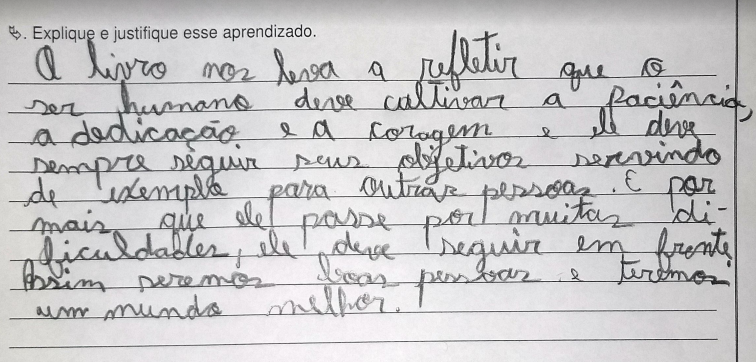 ↳. Explique e justifique esse aprendizado.
O livro nos leva a refletir que o
ser humano deve cultivar a paciência,
a dedicação e a coragem e ele deve
sempre seguir seus objetivos servindo
de exemplo para outras pessoas. E por
mais que ele passe por muitas di-
ficuldades, ele deve seguir em frente.
Assim seremos boas pessoas e teremos
um mundo melhor.